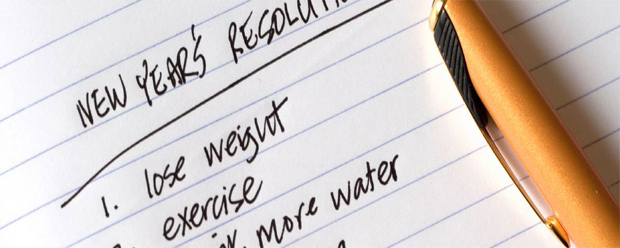 NEW YEAR'S
1. lose weight
exercise
more water